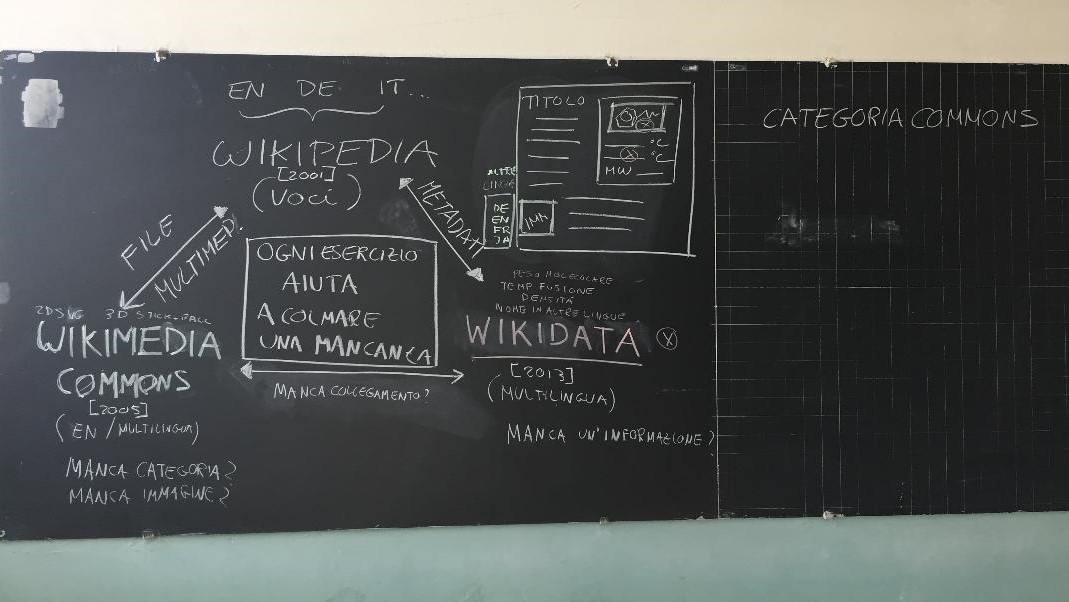 EN DE IT...
WIKIPEDIA
[2001]
(VOCI)
FILE
MULTIMED.
METADATI
TITOLO
°C
°C
MW
ALTRE
LINGUE
DE
EN
FR
JA
IMM
OGNI ESERCIZIO
AIUTA
A COLMARE
UNA MANCANZA
2D SVG 3D STICK+BALL
WIKIMEDIA
COMMONS
[2005]
(EN/MULTILINGUA)
MANCA CATEGORIA?
MANCA IMMAGINE?
MANCA COLLEGAMENTO?
PESO MOLECOLARE
TEMP FUSIONE
DENSITÀ
NOME IN ALTRE LINGUE
WIKIDATA
[2013]
(MULTILINGUA)
MANCA UN'INFORMAZIONE?
CATEGORIA COMMONS